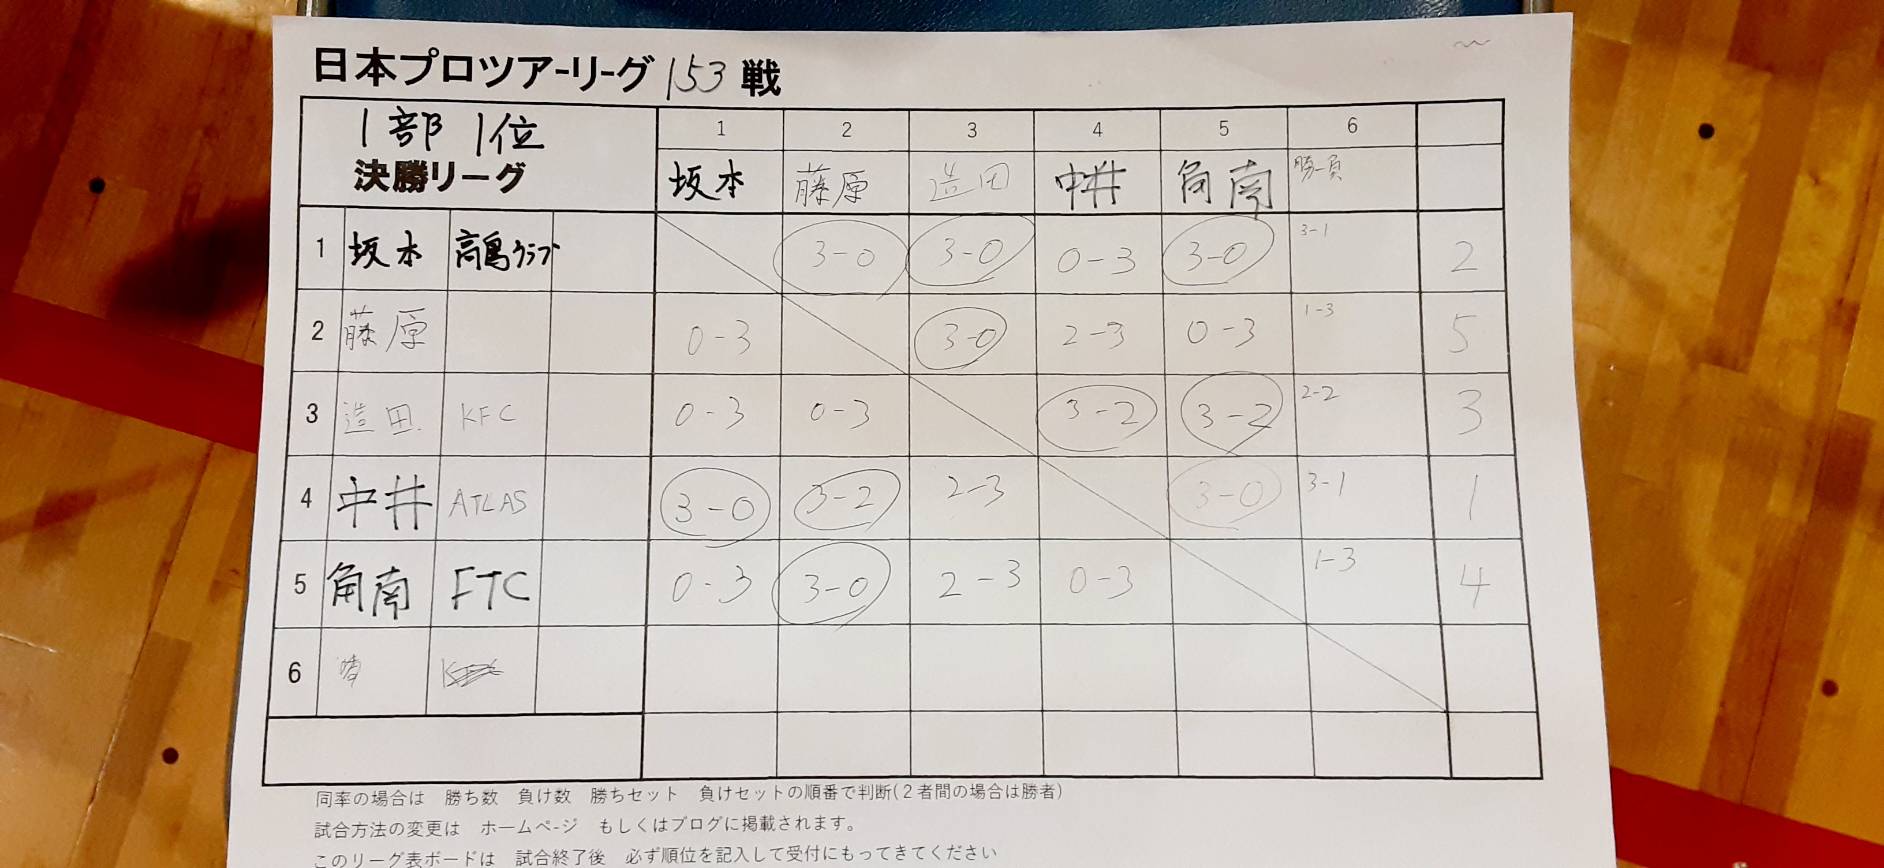 日本プロツアーリーグ 153 戦
1部 1位 1 2 3 4 5 6
決勝リーグ 坂本 藤原 造田 中井 角南 勝-負
1 坂本 高島クラブ 3-0 3-0 0-3 3-0 3-1 2
2 藤原 0-3 3-0 2-3 0-3 1-3 5
3 造田 KFC 0-3 0-3 3-2 3-2 2-2 3
4 中井 ATLAS 3-0 3-2 2-3 3-0 3-1 1
5 角南 FTC 0-3 3-0 2-3 0-3 1-3 4
6
同率の場合は 勝ち数 負け数 勝ちセット 負けセットの順番で判断(２者間の場合は勝者)
試合方法の変更は ホームページ もしくはブログに掲載されます。
このリーグ表ボードは 試合終了後 必ず順位を記入して受付にもってきてください